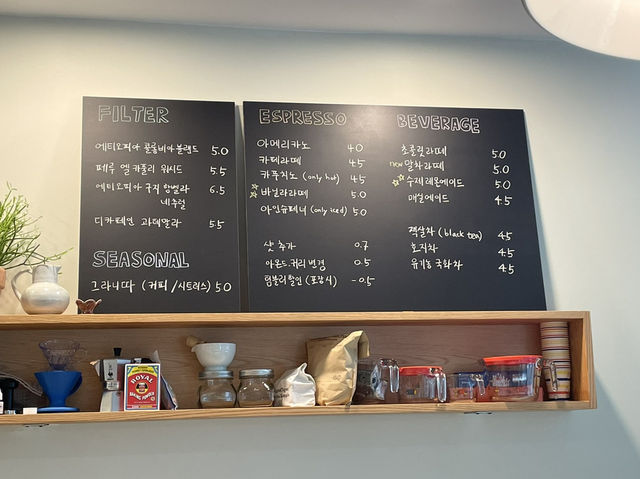 FILTER
에티오피아 콜롬비아 블랜드 5.0
페루 엘 카풀리 워시드 5.5
에티오피아 구지 함벨라 6.5
네추럴
디카페인 과테말라 5.5
SEASONAL
그라니따 (커피/시트러스) 5.0
ESPRESSO
아메리카노 4.0
카페라떼 4.5
카푸치노 (only hot) 4.5
바닐라라떼 5.0
아인슈페너 (only iced) 5.0
샷 추가 0.7
아몬드.커리 변경 0.5
텀블러 할인 (포장시) -0.5
BEVERAGE
초콜릿라떼 5.0
new 말차라떼 5.0
수제 레몬에이드 5.0
매실에이드 4.5
잭살차 (black tea) 4.5
호지차 4.5
유기농 국화차 4.5
ROYAL